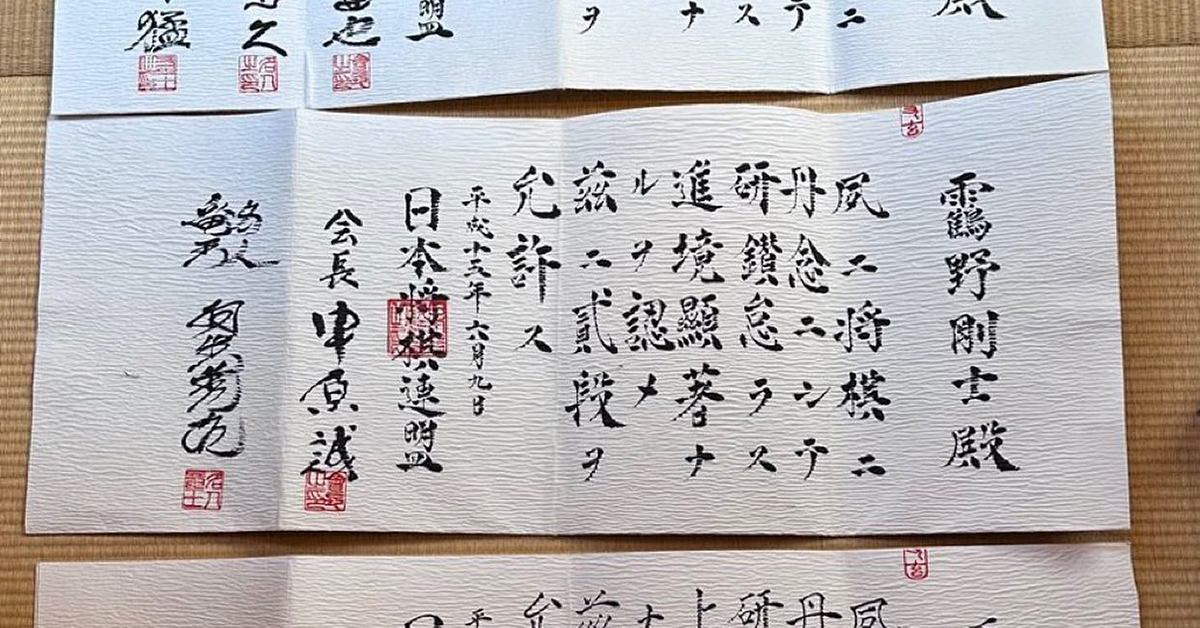 殿
ニ
テ
ス
ナ
ヲ
盟
也
久
猛
靏野剛士殿
夙ニ将棋ニ
丹念ニシテ
研鑽怠ラス
進境顯著ナ
ルヲ認メ
茲ニ貳段ヲ
允許ス
平成十五年六月九日
日本将棋連盟
会長 中原誠
名人
羽生善治
夙
丹
研
上
ナ
茲
允
平